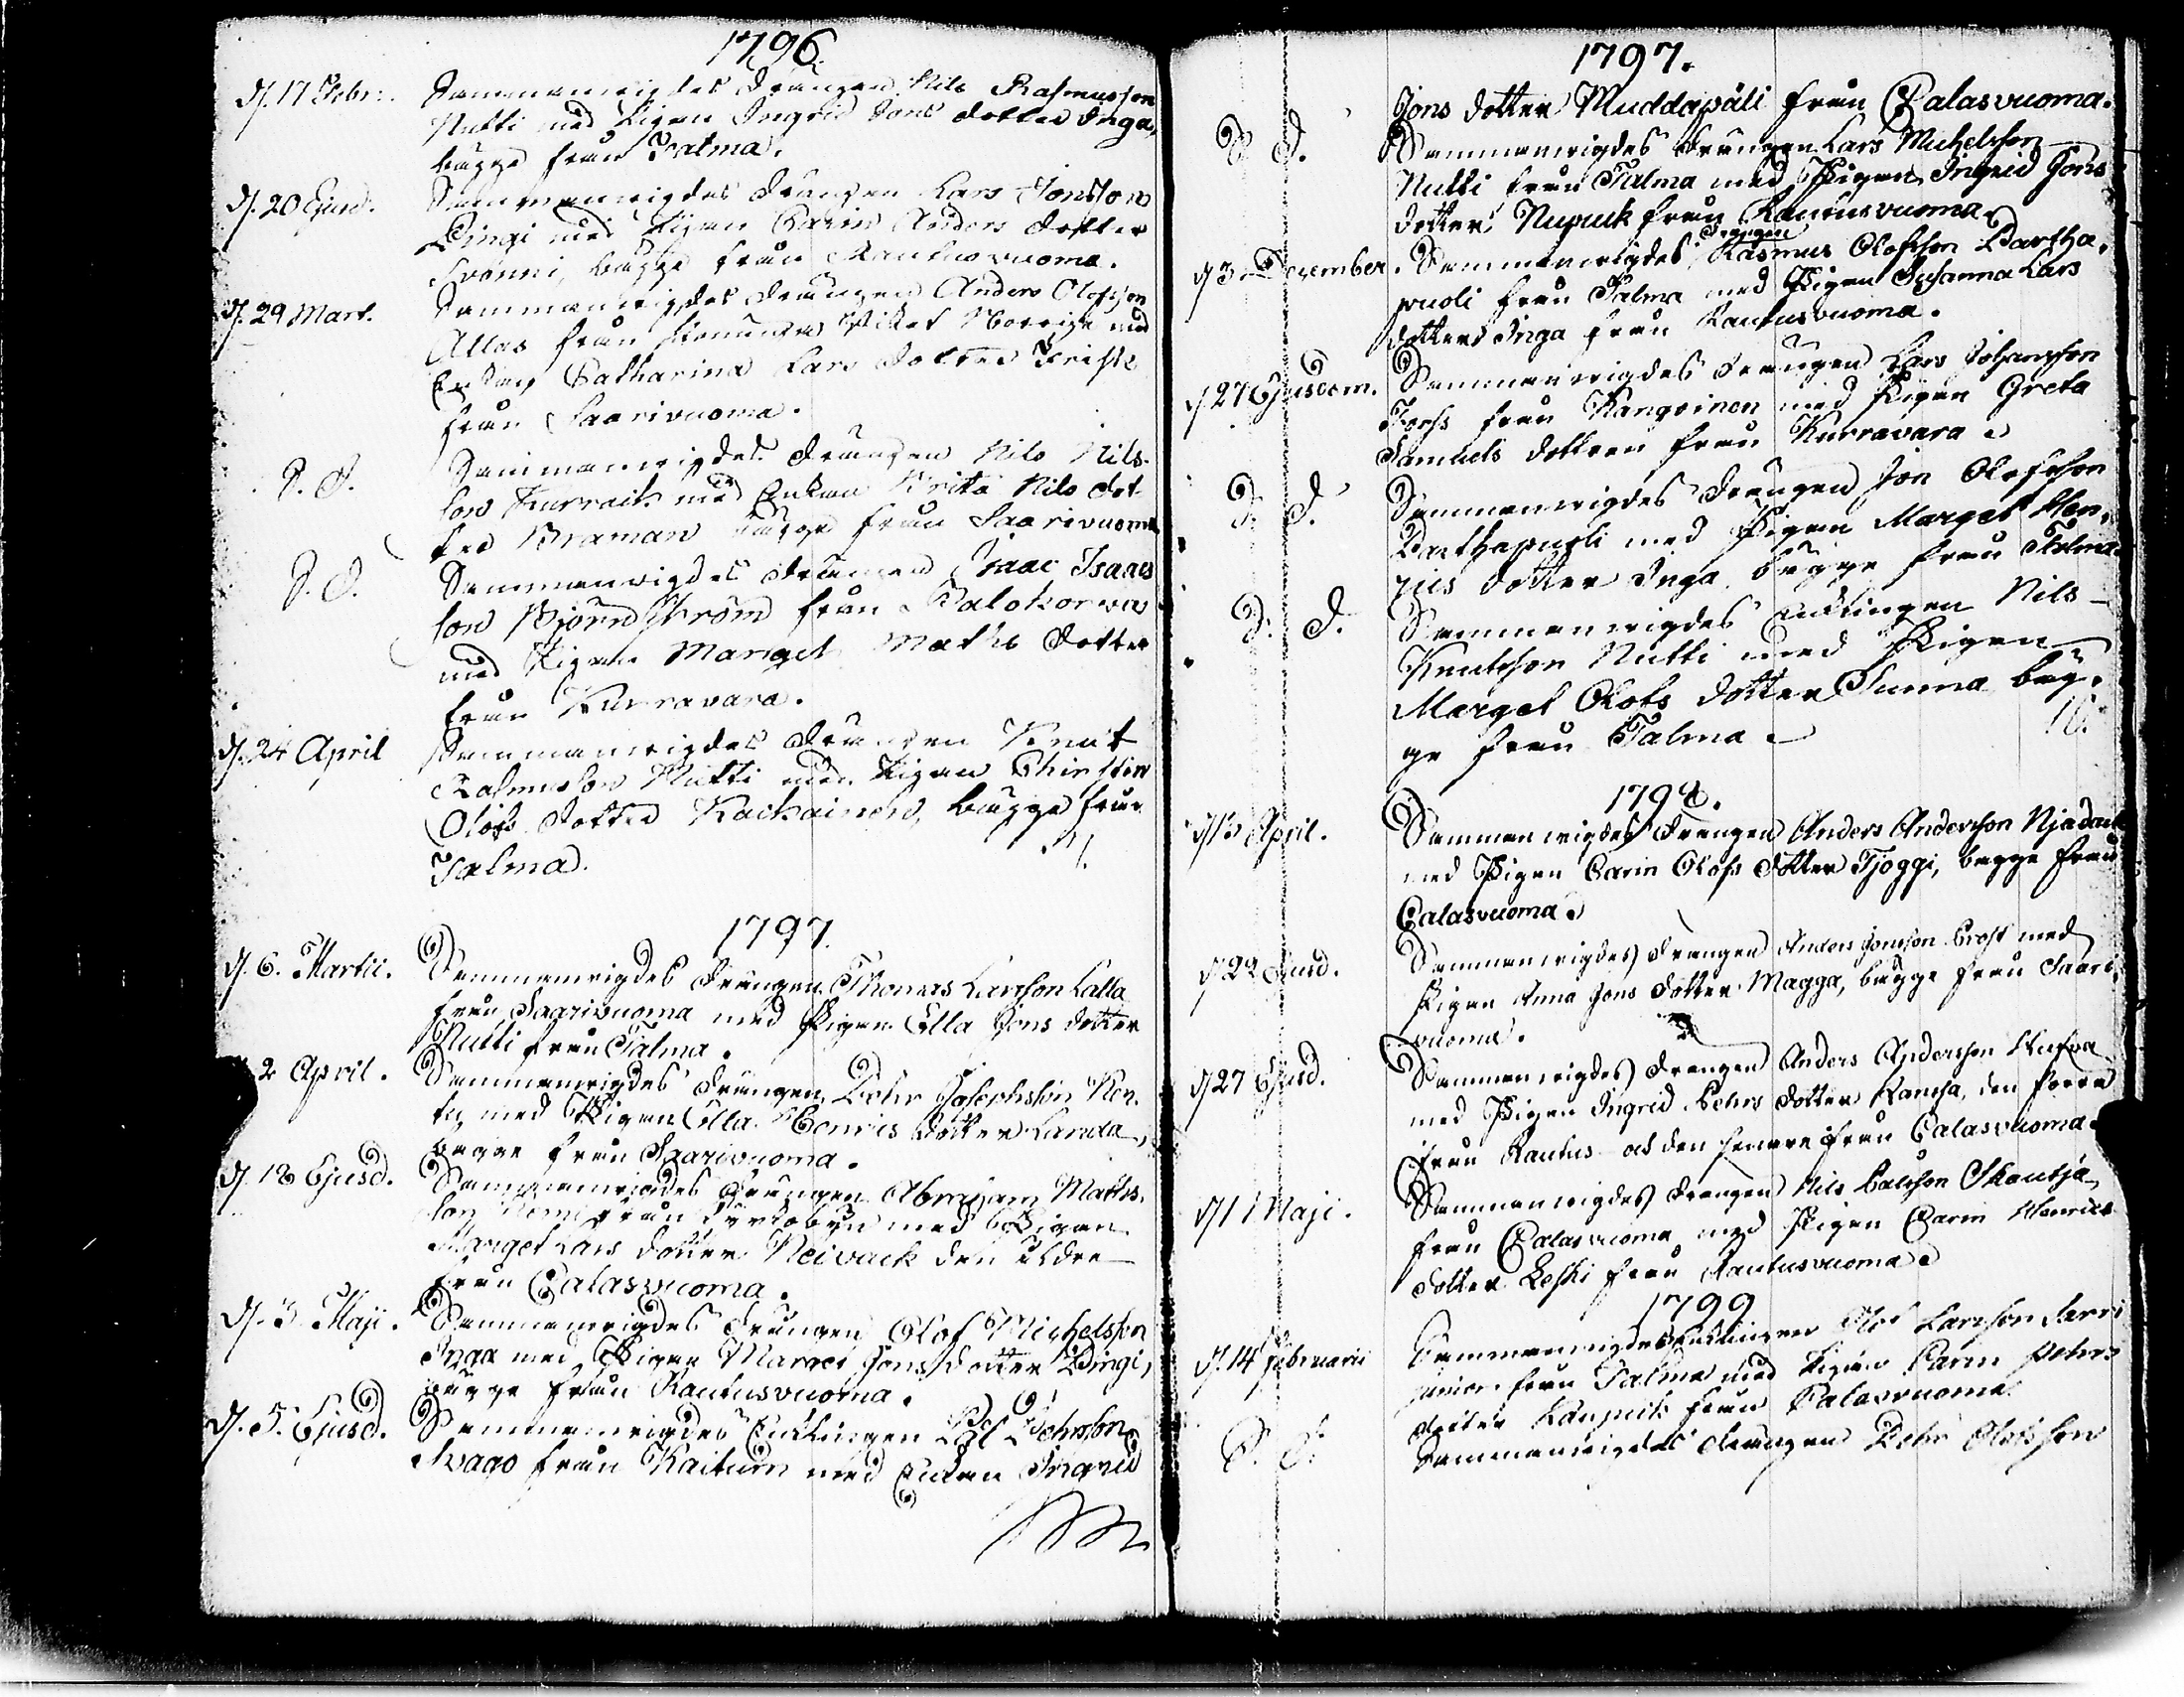 1796.
d. 17 Febr. Sammanvigdes drängen Nils Rasmusson
Nutti med Pigan Ingrid Jons dotter Inga,
bägge från Talma.
d. 20 Ejusd. Sammanvigdes drängen Lars Jonsson
Pingi med Pigan Carin Anders dotter
Svonni, bägge från Rautusvuoma.
d. 29 Mart. Sammanvigdes drängen Anders Olofsson
Allas från Norrige med
Enkan Catharina Lars dotter
från Saarivuoma.
D. D. Sammanvigdes drängen Nils Nils-
son Kurrack med Enkan Brita Nils dot-
ter Braman bägge från Saarivuoma
D. D. Sammanvigdes drängen Isaac Isaacs
son Björnström från Kalokorwa
med Pigan Marget Maths dotter
från Kurravara.
d. 24 April Sammanvigdes drängen Knut
Rasmusson Nutti med Pigan Chirstin
Olofs dotter Kackainen, bägge från
Talma.
1797.
d. 6. Martii. Sammanvigdes drängen Thomas Larsson Lalla
från Saarivuoma med Pigan Ella Jons dotter
Nutti från Talma.
2 April. Sammanvigdes drängen Pehr Josephsson
med Pigan Ella Henrics dotter Landa,
bägge från Saarivuoma.
d. 18 Ejusd. Sammanvigdes drängen Abraham Maths-
son från med Pigan
Marget Lars dotter Neivack den äldre
från Calasvuoma.
d. 3 Maji. Sammanvigdes drängen Olof Michelsson
Inga med Pigan Marget Jons dotter Pingi,
bägge från Rautusvuoma.
d. 5. Ejusd. Sammanvigdes Enklingen Pehrsson
Svago från Kaitum med Enkan Ingrid
1797.
Jons dotter Muddapäli från Calasvuoma.
D. D. Sammanvigdes drängen Lars Michelsson
Nutti från Talma med Pigan Ingrid Jons
dotter Nupuck från Rautusvuoma.
drängen
d 3 December. Sammanvigdes Rasmus Olofsson Partha-
puoli från Talma med Pigan Susanna Lars
dotter Inga från Rautusvuoma.
d 27 Ejusdem. Sammanvigdes drängen Lars Johansson
Forss från Kangoinen med Pigan Greta
Samuels dotter från Kurravara.
D. D. Sammanvigdes drängen Jon Olofsson
Parthapuoli med Pigan Marget Hen-
rics dotter Inga bägge från Talma.
D. D. Sammanvigdes Enklingen Nils
Knutsson Nutti med Pigan
Marget Olofs dotter Sunna bäg-
ge från Talma.
1798.
d 13 April. Sammanvigdes drängen Anders Andersson
med Pigan Carin Olofs dotter Tjoggi, bägge från
Calasvuoma.
d 22 Ejusd. Sammanvigdes drängen Anders Jonsson Prost med
Pigan Anna Jons dotter Magga, bägge från Saari-
vuoma.
d 27 Ejusd. Sammanvigdes drängen Anders Andersson
med Pigan Ingrid Pehrs dotter Rancha, den förra
från Rautus och den senare från Calasvuoma.
d 1 Maji. Sammanvigdes drängen Nils Skautja
från Calasvuoma med Pigan Carin Henrics
dotter Leski från Rautusvuoma.
1799
d. 14 Februarii Sammanvigdes Enklingen Olof Larsson Sarri
junior från Talma med Pigan Carin Pehrs
dotter Kaupuck från Calasvuoma.
D. D. Sammanvigdes drängen Pehr Olofsson